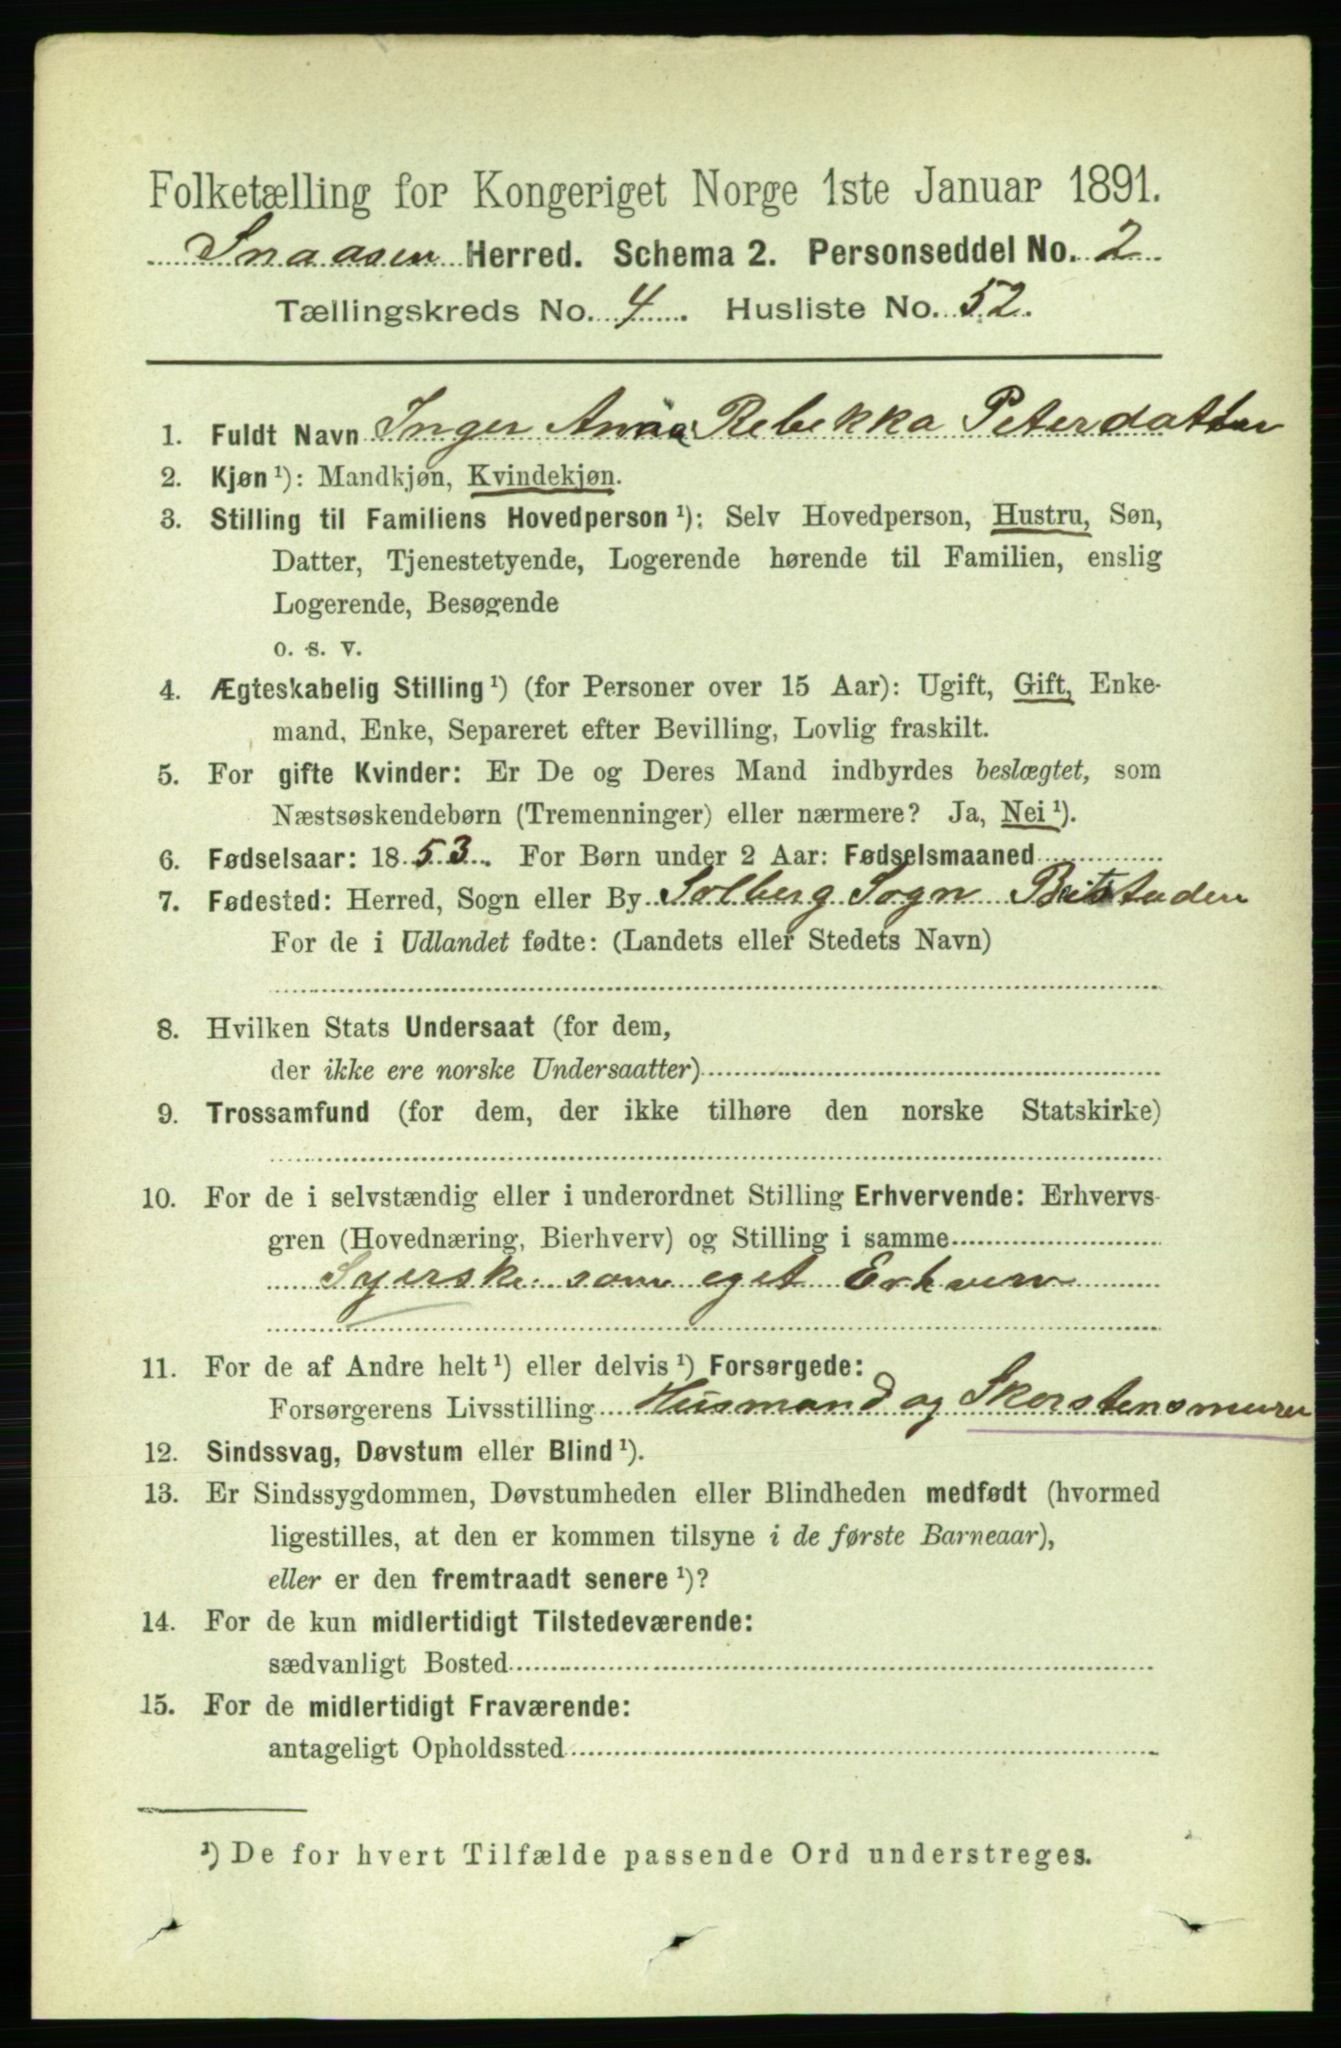 Folketælling for Kongeriget Norge 1ste Januar 1891.
Snaasen Herred. Schema 2. Personseddel No. 2
Tællingskreds No. 4. Husliste No. 52.
1. Fuldt Navn Inger Anna Rebekka Petersdatter
2. Kjøn ¹): Mandkjøn, Kvindekjøn.
3. Stilling til Familiens Hovedperson ¹): Selv Hovedperson, Hustru, Søn,
Datter, Tjenestetyende, Logerende hørende til Familien, enslig
Logerende, Besøgende
o. s. v.
4. Ægteskabelig Stilling ¹) (for Personer over 15 Aar): Ugift, Gift, Enke-
mand, Enke, Separeret efter Bevilling, Lovlig fraskilt.
5. For gifte Kvinder: Er De og Deres Mand indbyrdes beslægtet, som
Næstsøskendebørn (Tremenninger) eller nærmere? Ja, Nei ¹).
6. Fødselsaar: 1853. For Børn under 2 Aar: Fødselsmaaned
7. Fødested: Herred, Sogn eller By Solberg Sogn Beitstaden
For de i Udlandet fødte: (Landets eller Stedets Navn)
8. Hvilken Stats Undersaat (for dem,
der ikke ere norske Undersaatter)
9. Trossamfund (for dem, der ikke tilhøre den norske Statskirke)
10. For de i selvstændig eller i underordnet Stilling Erhvervende: Erhvervs-
gren (Hovednæring, Bierhverv) og Stilling i samme
Syerske som eget Erhverv
11. For de af Andre helt ¹) eller delvis ¹) Forsørgede:
Forsørgerens Livsstilling Husmand og Skorstensmurer
12. Sindssvag, Døvstum eller Blind ¹).
13. Er Sindssygdommen, Døvstumheden eller Blindheden medfødt (hvormed
ligestilles, at den er kommen tilsyne i de første Barneaar),
eller er den fremtraadt senere ¹)?
14. For de kun midlertidigt Tilstedeværende:
sædvanligt Bosted
15. For de midlertidigt Fraværende:
antageligt Opholdssted
¹) De for hvert Tilfælde passende Ord understreges.